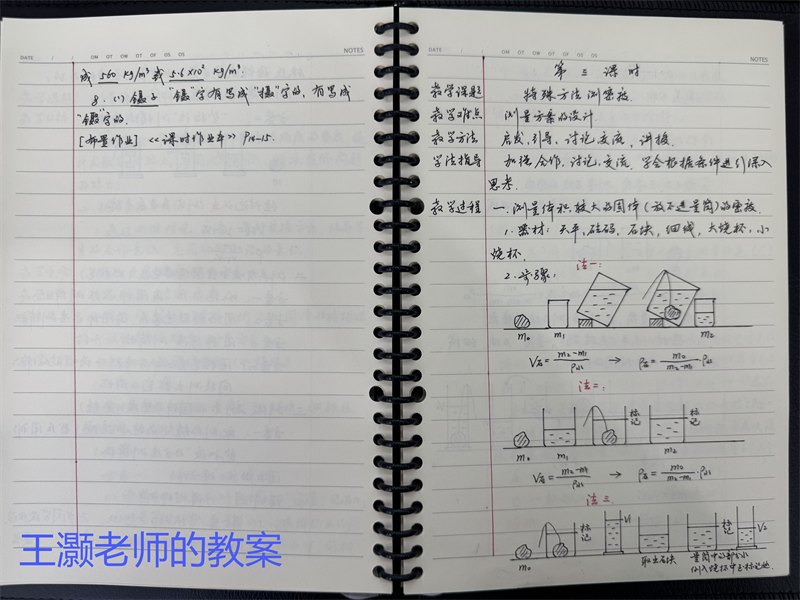 DATE / /
ON OT OW OT OF OS OS
NOTES
或 560 kg/m³ 或 5.6×10² kg/m³.
8. (1) 镊子 "镊"字有写成"摄"字的, 有写成
"镊"字的.
[布置作业] 《课时作业本》 P14-15.
王灏老师的教案
DATE / /
ON OT OW OT OF OS OS
NOTES
第三课时
教学课题 特殊方法测密度.
教学难点 测量方案的设计.
教学方法 启发, 引导, 讨论, 交流, 讲授.
学法指导 加强合作, 讨论, 交流. 学会根据条件进行深入
思考.
教学过程 一. 测量体积较大的固体(放不进量筒)的密度.
1. 器材: 天平, 砝码, 石块, 细线, 大烧杯, 小
烧杯.
2. 步骤: 法一:
m₀ m₁ m₂
V石 = (m₂-m₁)/ρ水 → ρ石 = m₀/(m₂-m₁)·ρ水
法二:
标记 标记
m₀ m₁ m₂
V石 = (m₂-m₁)/ρ水 → ρ石 = m₀/(m₂-m₁)·ρ水
法三.
标记 V₁ 标记 V₂
m₀ 取出石块 量筒中的部分水
倒入烧杯中至标记处.